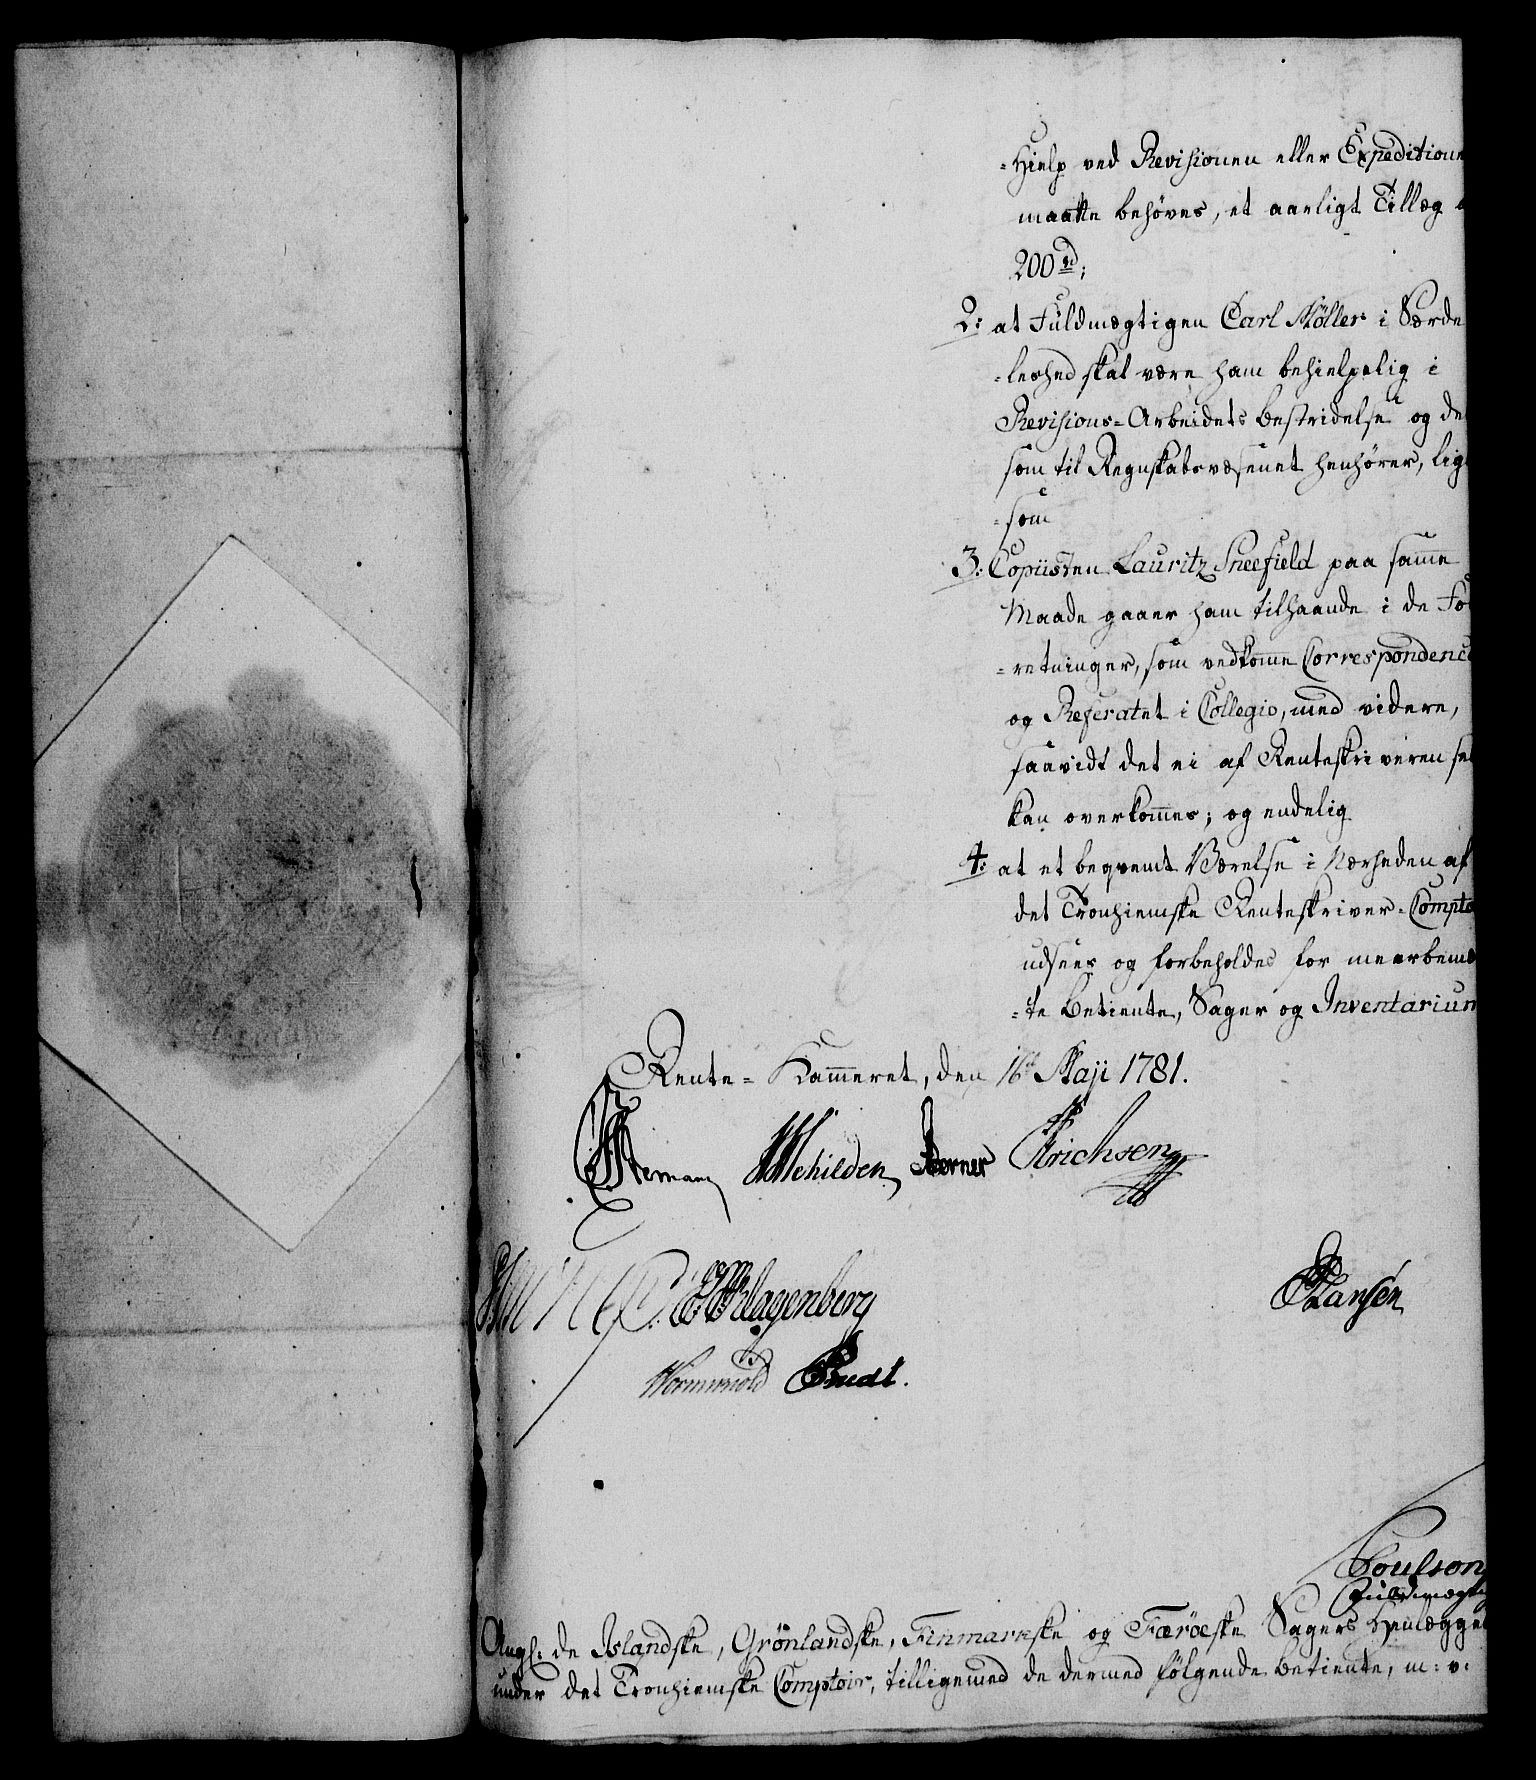 -Hielp ved Revisionen eller Expeditione
maatte behöves, et aarligt Tillæg a
200 rd;
2: at Fuldmægtigen Carl Möller i Særde
-leshed skal være ham behielpelig i
Revisions-Arbeidets bestridelse og de
som til Regnskabsvæsenet henhörer, lige
-som
3: Copiisten Lauritz Sneefield paa sam̄e
Maade gaaer ham tilhaande i de For
-retninger, som vedkom̄e Correspondence
og Referatet i Collegio, med videre,
saavidt det ei af Renteskriveren sel
kan overkom̄es; og endelig
4: at et beqvemt Værelse i Nærheden af
det Tronhiemske Renteskriver-Compto
udsees og forbeholdes for meerbeme
-te betiente, Sager og Inventarium
Rente-Kam̄eret, den 16de Maji 1781.
Schilden Berner Erichsen
Klagenberg Hansen
Wormskiold
Poulson
Fuldmægtig
Angl: de Islandske, Grönlandske, Finmarkske og Færöeske Sagers Henlægge
under det Tronhiemske Comptoir, tilligemed de dermed fölgende betiente, m: v: